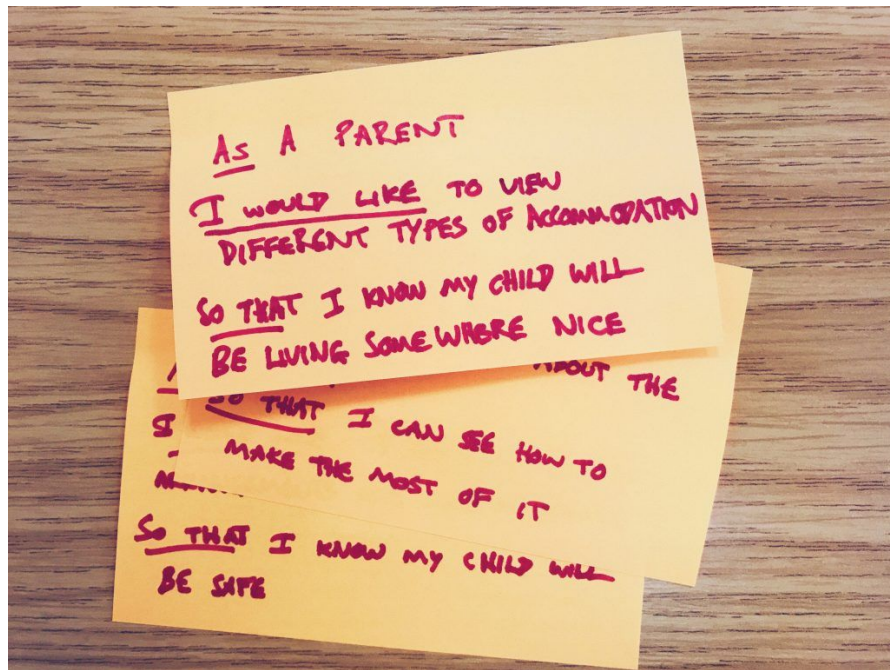 AS A PARENT
I WOULD LIKE TO VIEW
DIFFERENT TYPES OF ACCOMMODATION
SO THAT I KNOW MY CHILD WILL
BE LIVING SOMEWHERE NICE
ABOUT THE
SO THAT I CAN SEE HOW TO
MAKE THE MOST OF IT
SO THAT I KNOW MY CHILD WILL
BE SAFE